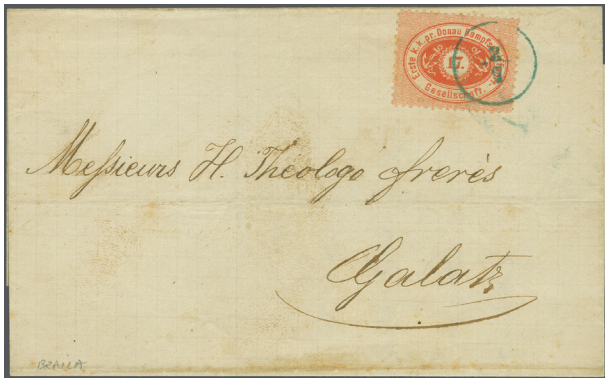 Erste k. k. pr. Donau Dampfschiffahrt
17.
Gesellschaft.
Messieurs H. Theologo frerès
Galatz
BRAILA